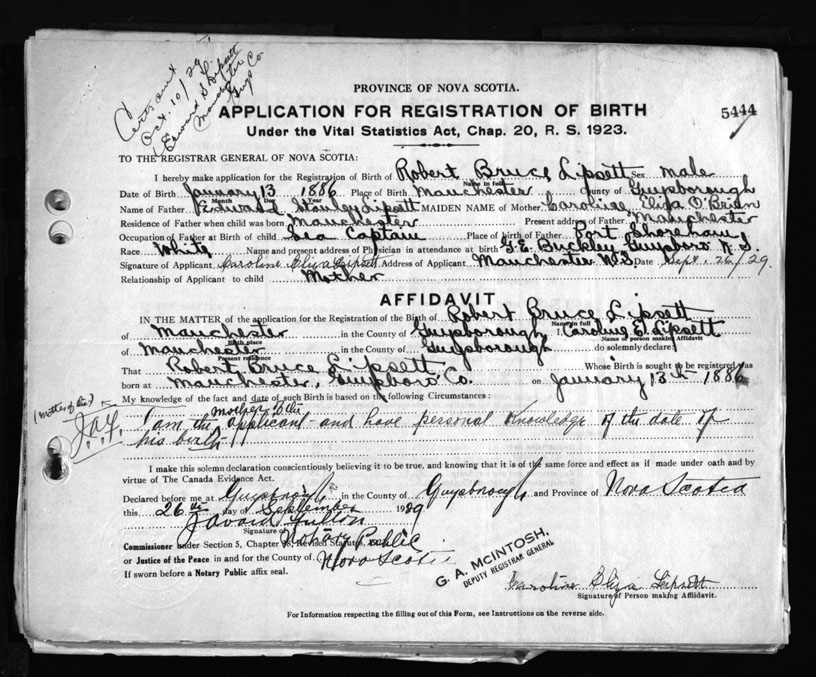 Cert sent
Oct. 10/29
Edward S Lipsett
Manchester
Guys Co.
PROVINCE OF NOVA SCOTIA.
APPLICATION FOR REGISTRATION OF BIRTH
5444
Under the Vital Statistics Act, Chap. 20, R. S. 1923.
TO THE REGISTRAR GENERAL OF NOVA SCOTIA:
I hereby make application for the Registration of Birth of Robert Bruce Lipsett Sex male
Name in full
Date of Birth January 13 1886 Place of Birth Manchester County of Guysborough
Month Day Year
Name of Father Edward Stanley Lipsett MAIDEN NAME of Mother Caroline Eliza O'Brian
Residence of Father when child was born Manchester Present address of Father Manchester
Occupation of Father at Birth of child Sea Captain Place of birth of Father Port Shoreham
Race White Name and present address of Physician in attendance at birth G. E. Buckley Guysboro N. S.
Signature of Applicant Caroline Eliza Lipsett Address of Applicant Manchester N.S. Date Sept. 26/29.
Relationship of Applicant to child Mother
AFFIDAVIT
IN THE MATTER of the application for the Registration of the Birth of Robert Bruce Lipsett
Name in full
of Manchester in the County of Guysborough, I Caroline E. Lipsett
Birth place Name of person making Affidavit
of Manchester in the County of Guysborough do solemnly declare:
Present residence
That Robert Bruce Lipsett Whose Birth is sought to be registered was
born at Manchester, Guysboro Co. on January 13th 1886
My knowledge of the fact and date of such Birth is based on the following Circumstances:
(mother of the)
J.A.F.
I am the mother of the applicant and have personal knowledge of the date of
his birth
I make this solemn declaration conscientiously believing it to be true, and knowing that it is of the same force and effect as if made under oath and by
virtue of The Canada Evidence Act.
Declared before me at Guysborough in the County of Guysborough and Province of Nova Scotia
this 26th day of September 1929
Signature of
Notary Public
Commissioner under Section 5, Chapter 38, Revised Statutes
or Justice of the Peace in and for the County of Nova Scotia
If sworn before a Notary Public affix seal.
G. A. McINTOSH,
DEPUTY REGISTRAR GENERAL
Caroline Eliza Lipsett
Signature of Person making Affidavit.
For Information respecting the filling out of this Form, see Instructions on the reverse side.